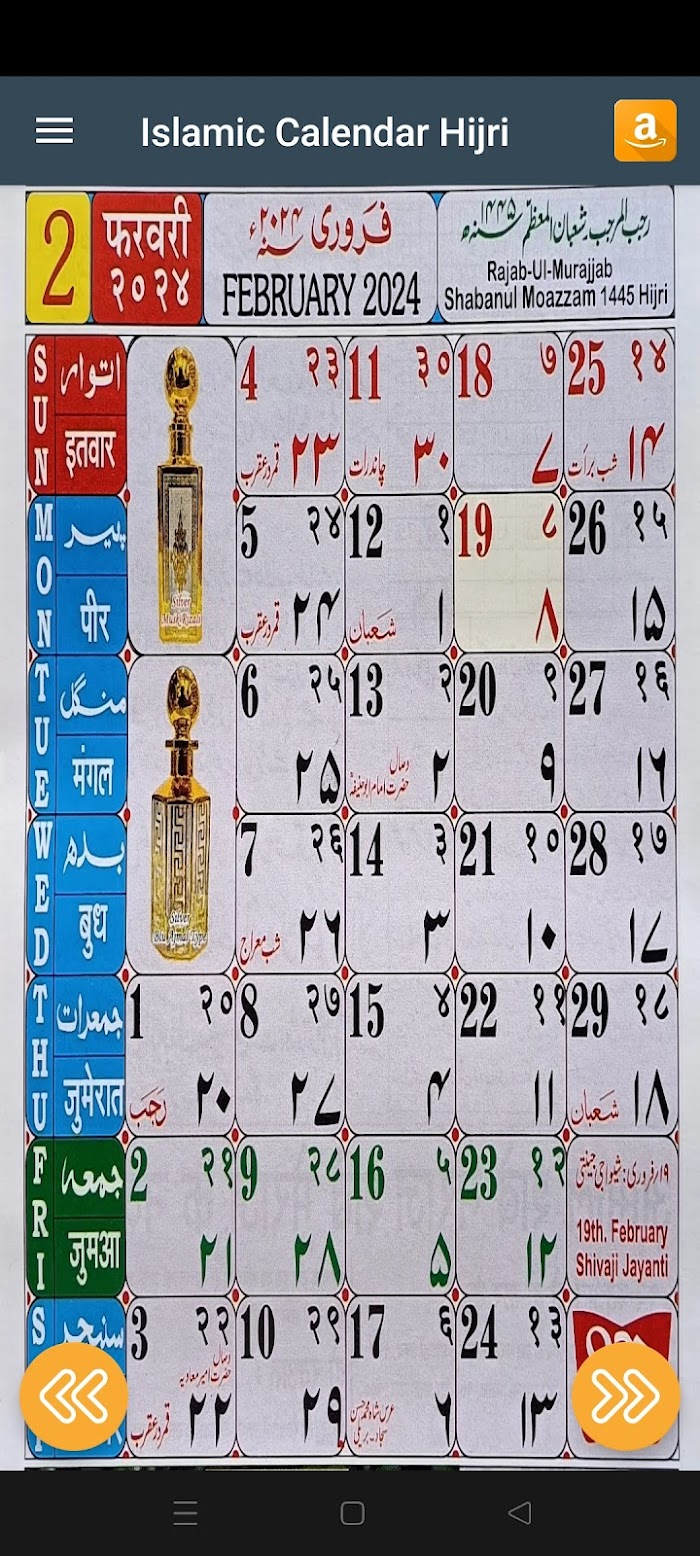 Islamic Calendar Hijri
a
2
फरवरी
२०२४
فروری ۲۰۲۴ء
FEBRUARY 2024
رجب المرجب شعبان المعظم ۱۴۴۵ھ
Rajab-Ul-Murajjab
Shabanul Moazzam 1445 Hijri
SUN
اتوار
इतवार
4 २३
قمر در عقرب ۲۳
11 ३०
چاندرات ۳۰
18 ७
۷
25 १४
شب برأت ۱۴
MON
پیر
पीर
Silver
5 २४
قمر در عقرب ۲۴
12 १
شعبان ۱
19 ८
۸
26 १५
۱۵
TUE
منگل
मंगल
6 २५
۲۵
13 २
وصال
حضرت امام ابو حنیفہ ۲
20 ९
۹
27 १६
۱۶
WED
بدھ
बुध
Silver
7 २६
شب معراج ۲۶
14 ३
۳
21 १०
۱۰
28 १७
۱۷
THU
جمعرات
जुमेरात
1 २०
رجب ۲۰
8 २७
۲۷
15 ४
۴
22 ११
۱۱
29 १८
شعبان ۱۸
FRI
جمعہ
जुमआ
2 २१
۲۱
9 २८
۲۸
16 ५
۵
23 १२
۱۲
۱۹/فروری: شیواجی جینتی
19th. February
Shivaji Jayanti
S
سنیچر
3 २२
وصال
حضرت امیر معاویہ
قمر در عقرب ۲۲
10 २९
۲۹
17 ६
۶
24 १३
۱۳